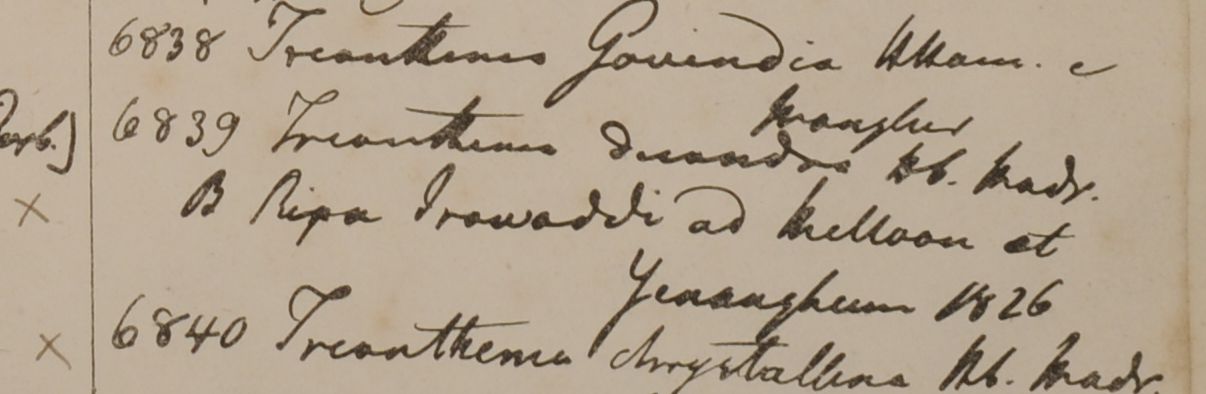 6838 Trianthema Govindia HHam. e
Mongher
6839 Trianthema decandra Hb. Madr.
B Ripa Irawaddi ad Melloon et
Yenangheum 1826
6840 Trianthema chrystallina Hb. Madr.